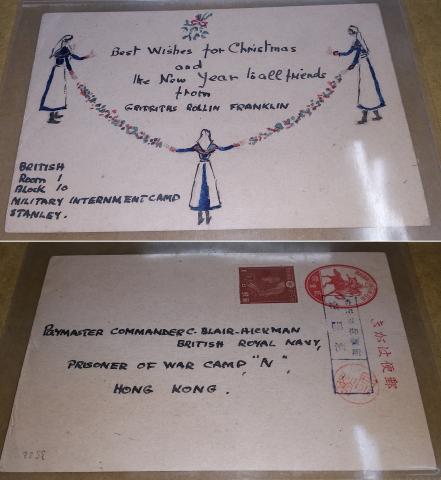 Best Wishes for Christmas
and
the New Year to all friends
from
GRIFFITHS ROLLIN FRANKLIN
BRITISH
Room 1
Block 10
MILITARY INTERNMENT CAMP
STANLEY.
PAYMASTER COMMANDER C. BLAIR-HICKMAN
BRITISH ROYAL NAVY,
PRISONER OF WAR CAMP, "N",
HONG KONG.
きがは便郵